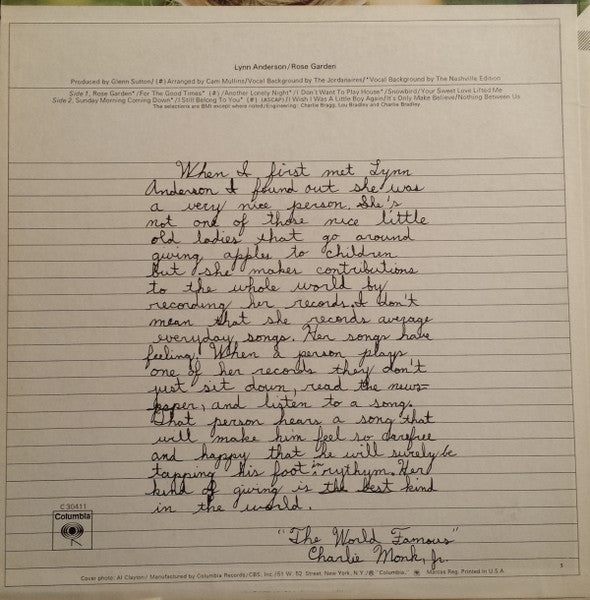 Lynn Anderson/Rose Garden
Produced by Glenn Sutton/(#) Arranged by Cam Mullins/Vocal Background by The Jordanaires/*Vocal Background by The Nashville Edition
Side 1, Rose Garden*/For The Good Times* (#)/Another Lonely Night*/I Don't Want To Play House*/Snowbird/Your Sweet Love Lifted Me
Side 2, Sunday Morning Coming Down*/I Still Belong To You* (#) (ASCAP)/I Wish I Was A Little Boy Again/It's Only Make Believe/Nothing Between Us
The selections are BMI except where noted/Engineering: Charlie Bragg, Lou Bradley and Charlie Bradley
When I first met Lynn
Anderson I found out she was
a very nice person. She's
not one of those nice little
old ladies that go around
giving apples to children
but she makes contributions
to the whole world by
recording her records. I don't
mean that she records average
everyday songs. Her songs have
feeling. When a person plays
one of her records they don't
just sit down, read the news=
paper, and listen to a song.
That person hears a song that
will make him feel so carefree
and happy that he will surely be
tapping his foot in rythym. Her
kind of giving is the best kind
in the world.
"The World Famous"
Charlie Monk, Jr.
C 30411
Columbia
Cover photo: Al Clayton/Manufactured by Columbia Records/CBS, Inc./51 W. 52 Street, New York, N.Y./® "Columbia," Marcas Reg. Printed in U.S.A.